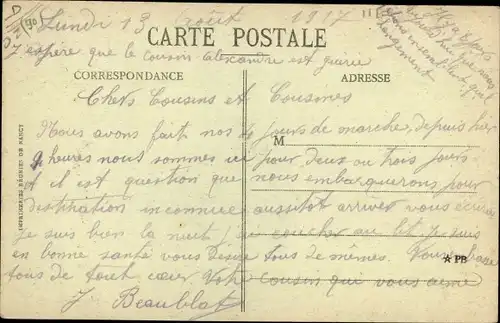 Lundi 13 Août 1917
J'espère que le cousin Alexandre est guéri
CARTE POSTALE
CORRESPONDANCE
ADRESSE
Chers Cousins et Cousines
Nous avons fait nos 4 jours de marche, depuis hier
M
9 heures nous sommes ici pour deux ou trois jours
et il est question que nous embarquerons pour
destination inconnue aussitot arriver vous écrirai
je suis bien la nuit coucher au lit. Je suis
en bonne santé vous désire tous de mêmes. Vous
tous de tout cœur Votre cousin qui vous aime
J Beaublat
* PB
IMPRIMERIES RÉUNIES DE NANCY
changement